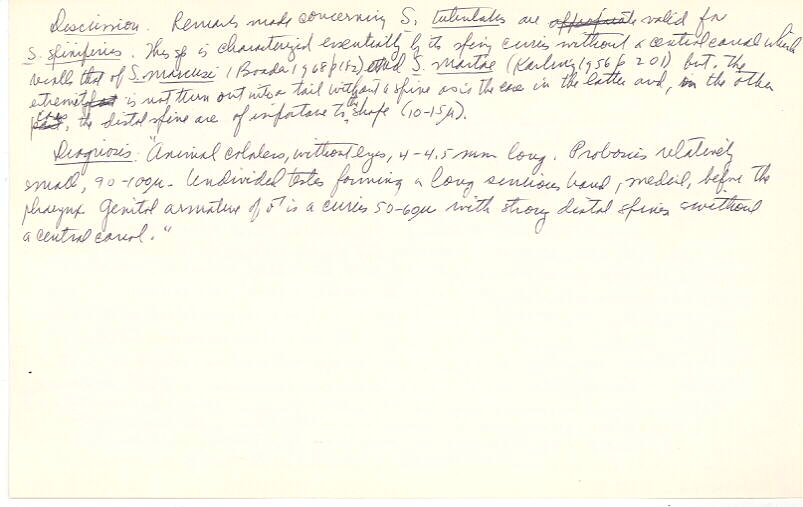 Discussion. Remarks made concerning S. tubulatus are valid for
S. spinifirus. This sp is characterized essentially by its spiny cirrus without a central canal which
recalls that of S. marcusi (Boaden 1968 p 182) and S. martae (Karling 1956 p 201) but, the
extremity is not turn out into a tail without a spine as is the case in the latter and, in the other
case, the distal spine are of importance to the shape (10-15µ).
Diagnosis: "Animal colorless, without eyes, 4-4.5 mm long. Proboscis relatively
small, 90-100µ. Undivided testes forming a long sinuous band, medial, before the
pharynx. Genital armature of ♂ is a cirrus 50-60µ with strong distal spines & without
a central canal."